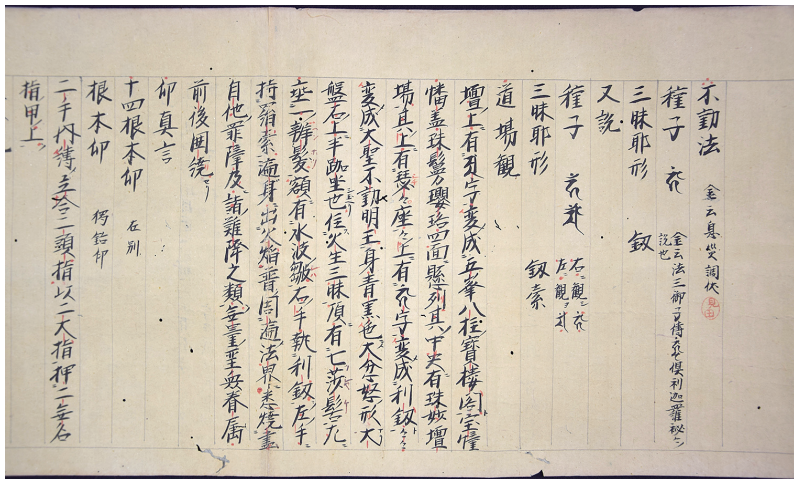 不動法 金云息災調伏
種子 金云法三御子傳 倶利迦羅秘云 説也
三昧耶形 釼
又説
種子 右ニ観 左ニ観
三昧耶形 釼索
道場観
壇上有 字変成五峯八柱寶楼閣宝幢
幡盖珠鬘瓔珞四面懸列其中央有珠妙壇
場其上有瑟々座々上有 字変成利釼々々
変成大聖不動明王身青黒色大忿怒形大
盤石上半跏坐也住火生三昧頂有七莎髻左
垂一辮髪額有水波皺右手執利釼左手
持羂索遍身出火焔普周遍法界悉焼盡
自他罪障及諸難降之類 眷属
前後囲繞
印真言
十四根本印 在別
根本印 独鈷印
二手内縛立合二頭指以二大指押二無名
指甲上